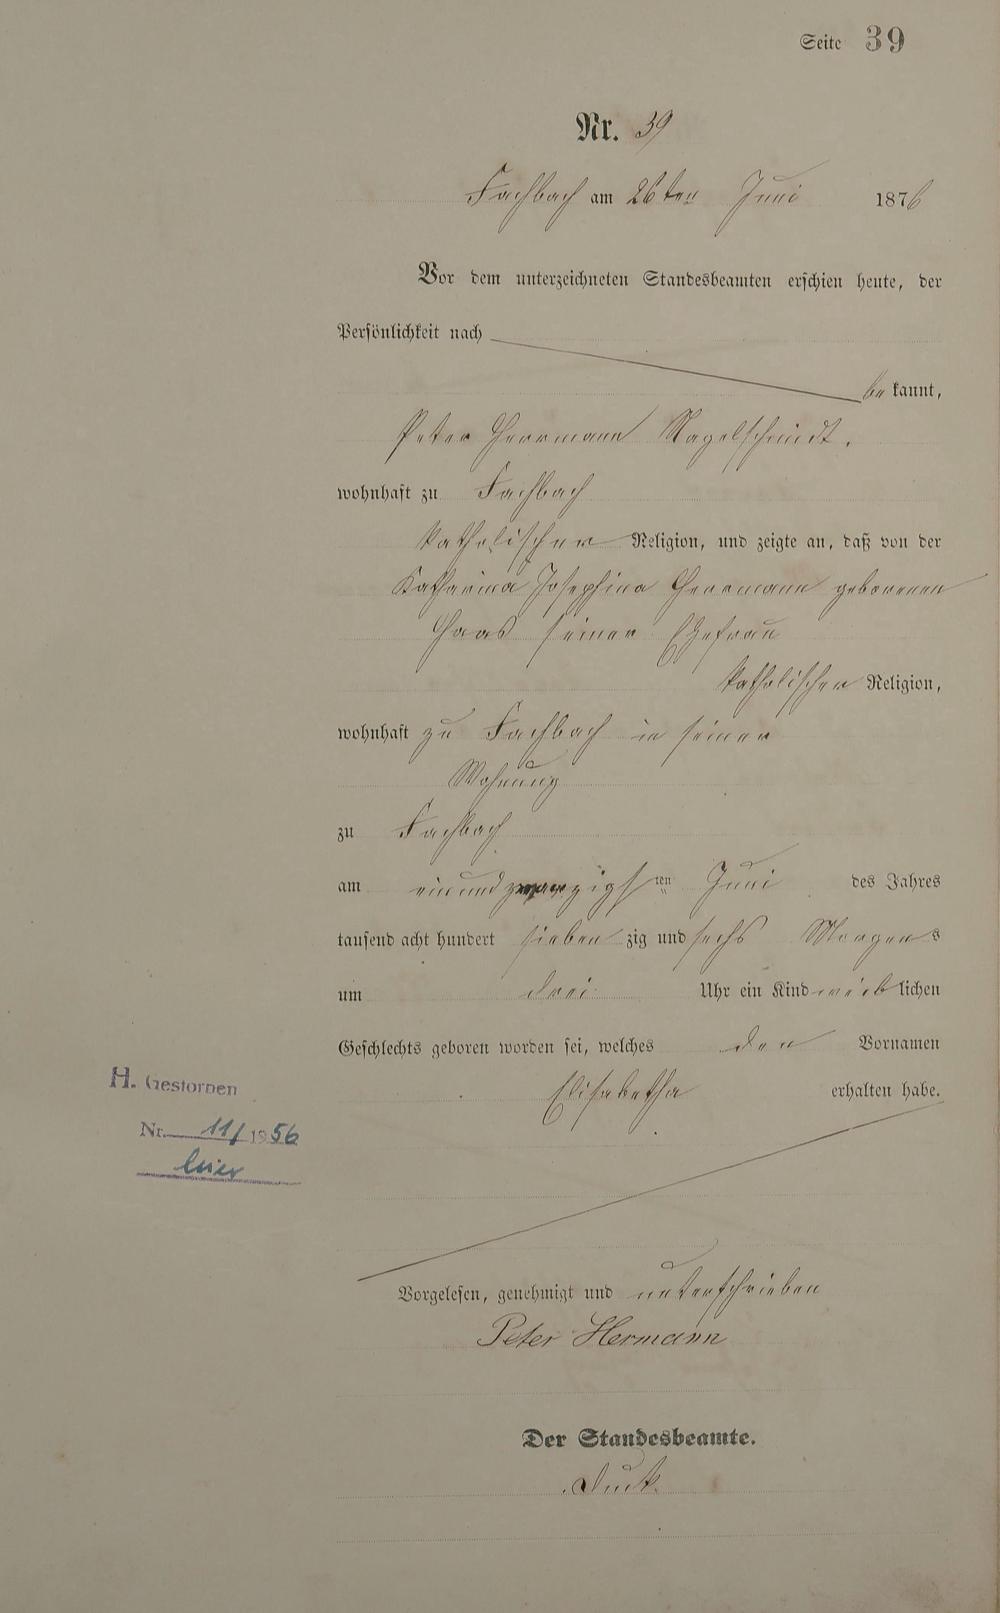 Seite 39
Nr. 39
Fachbach am 26ten Juni 1876
Vor dem unterzeichneten Standesbeamten erschien heute, der
Persönlichkeit nach
bekannt,
Peter Herrmann Nagelschmidt.
wohnhaft zu Fachbach
katholischer Religion, und zeigte an, daß von der
Katharina Josephina Herrmann geborenen
Haas seiner Ehefrau
katholischer Religion,
wohnhaft zu Fachbach in seiner
Wohnung
zu Fachbach
am einundzwanzigsten Juni des Jahres
tausend acht hundert siebenzig und sechs Morgens
um drei Uhr ein Kind weiblichen
Geschlechts geboren worden sei, welches den Vornamen
Elisabetha erhalten habe.
H. Gestorben
Nr. 11/1956
Vorgelesen, genehmigt und unterschrieben
Peter Hermann
Der Standesbeamte.